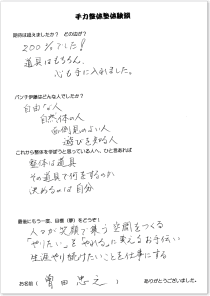 チカラ整体塾体験録
期待は超えましたか？ どの辺が？
200%でした！
道具はもちろん、
心も手に入れました。
パンチ伊藤はどんな人でしたか？
自由な人
自然体の人
面倒見のよい人
遊びを知る人
これから整体を学ぼうと思っている人へ、ひと言あれば
整体は道具
その道具で何をするのか
決めるのは自分
最後にもう一度、目標（夢）をどうぞ！
人々が笑顔で集う空間をつくる
「やりたい」を「やれる」に変えるお手伝い
生涯やり続けたいことを仕事にする
お名前（ 曽田 忠之 ）
ありがとうございました。